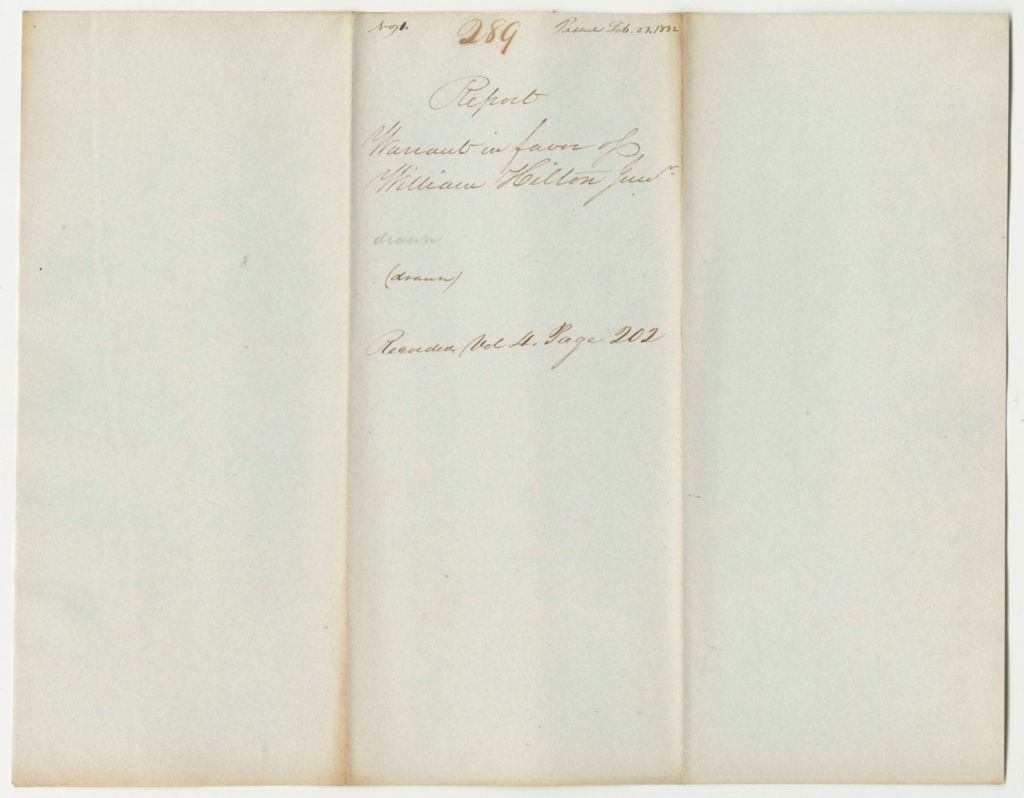 289 Passed Feb. 23. 1832
Report
Warrant in favor of
William Hilton Junr.
drawn
(drawn)
Recorded Vol 4. Page 202